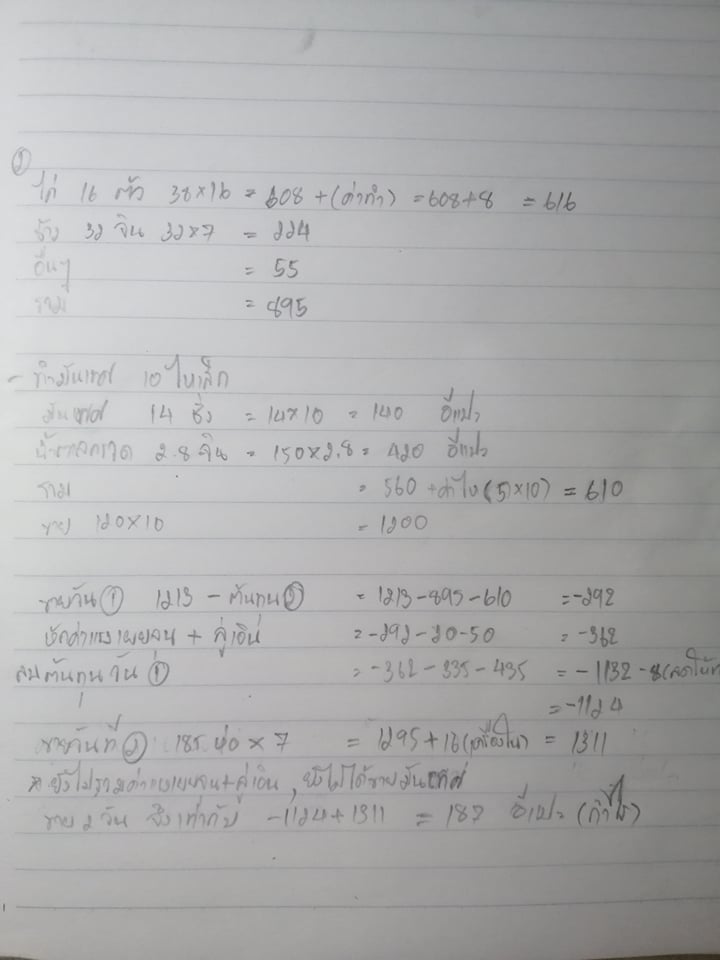 ②
ไก่ 16 ตัว 38×16 = 608 + (ค่าทำ) = 608+8 = 616
32 จิน 32×7 = 224
อื่นๆ = 55
รวม = 895
- ทำมันเทศ 10 ไหเล็ก
มันเทศ 14 ชั่ง = 14×10 = 140 อีแปะ
น้ำตาลกรวด 2.8 จิน = 150×2.8 = 420 อีแปะ
รวม = 560 + ค่าไห (5×10) = 610
ขาย 120×10 = 1200
ขายวัน ① 1213 - ต้นทุน ② = 1213-895-610 = -292
หักค่าแรงเผยจน + ลู่เอิน = -292-20-50 = -362
ลบต้นทุนวัน ① = -362-335-435 = -1132 -8
= -1124
ขายวันที่ ② 185 ห่อ × 7 = 1295+16 (เครื่องใน) = 1311
* ยังไม่รวมค่าแรงเผยจน+ลู่เอิน, ยังไม่ได้ขายมันเทศ
ขาย 2 วัน จึงเท่ากับ -1124+1311 = 187 อีแปะ (กำไร)